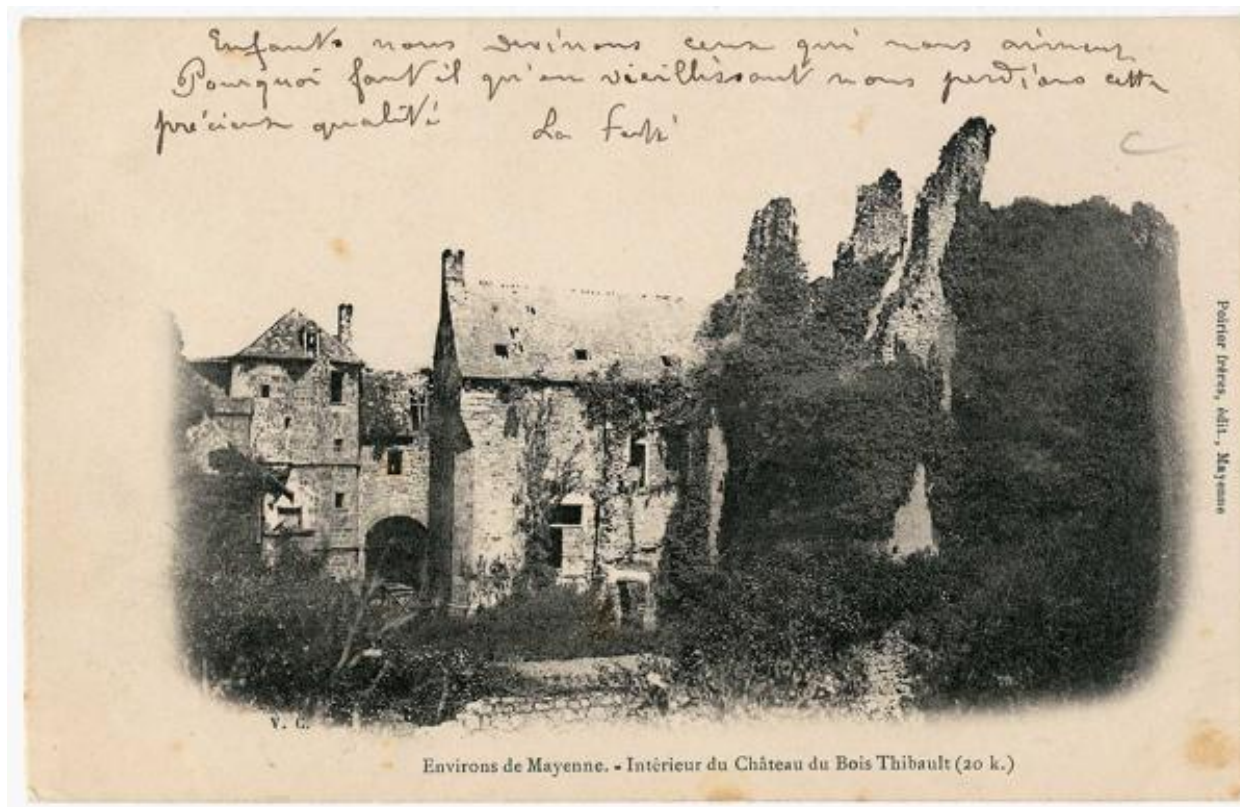 Enfants nous devinons ceux qui nous aiment
Pourquoi faut il qu'en vieillissant nous perdions cette
précieuse qualité La Ferté
Poirier frères, édit., Mayenne
V. C.
Environs de Mayenne. - Intérieur du Château du Bois Thibault (20 k.)